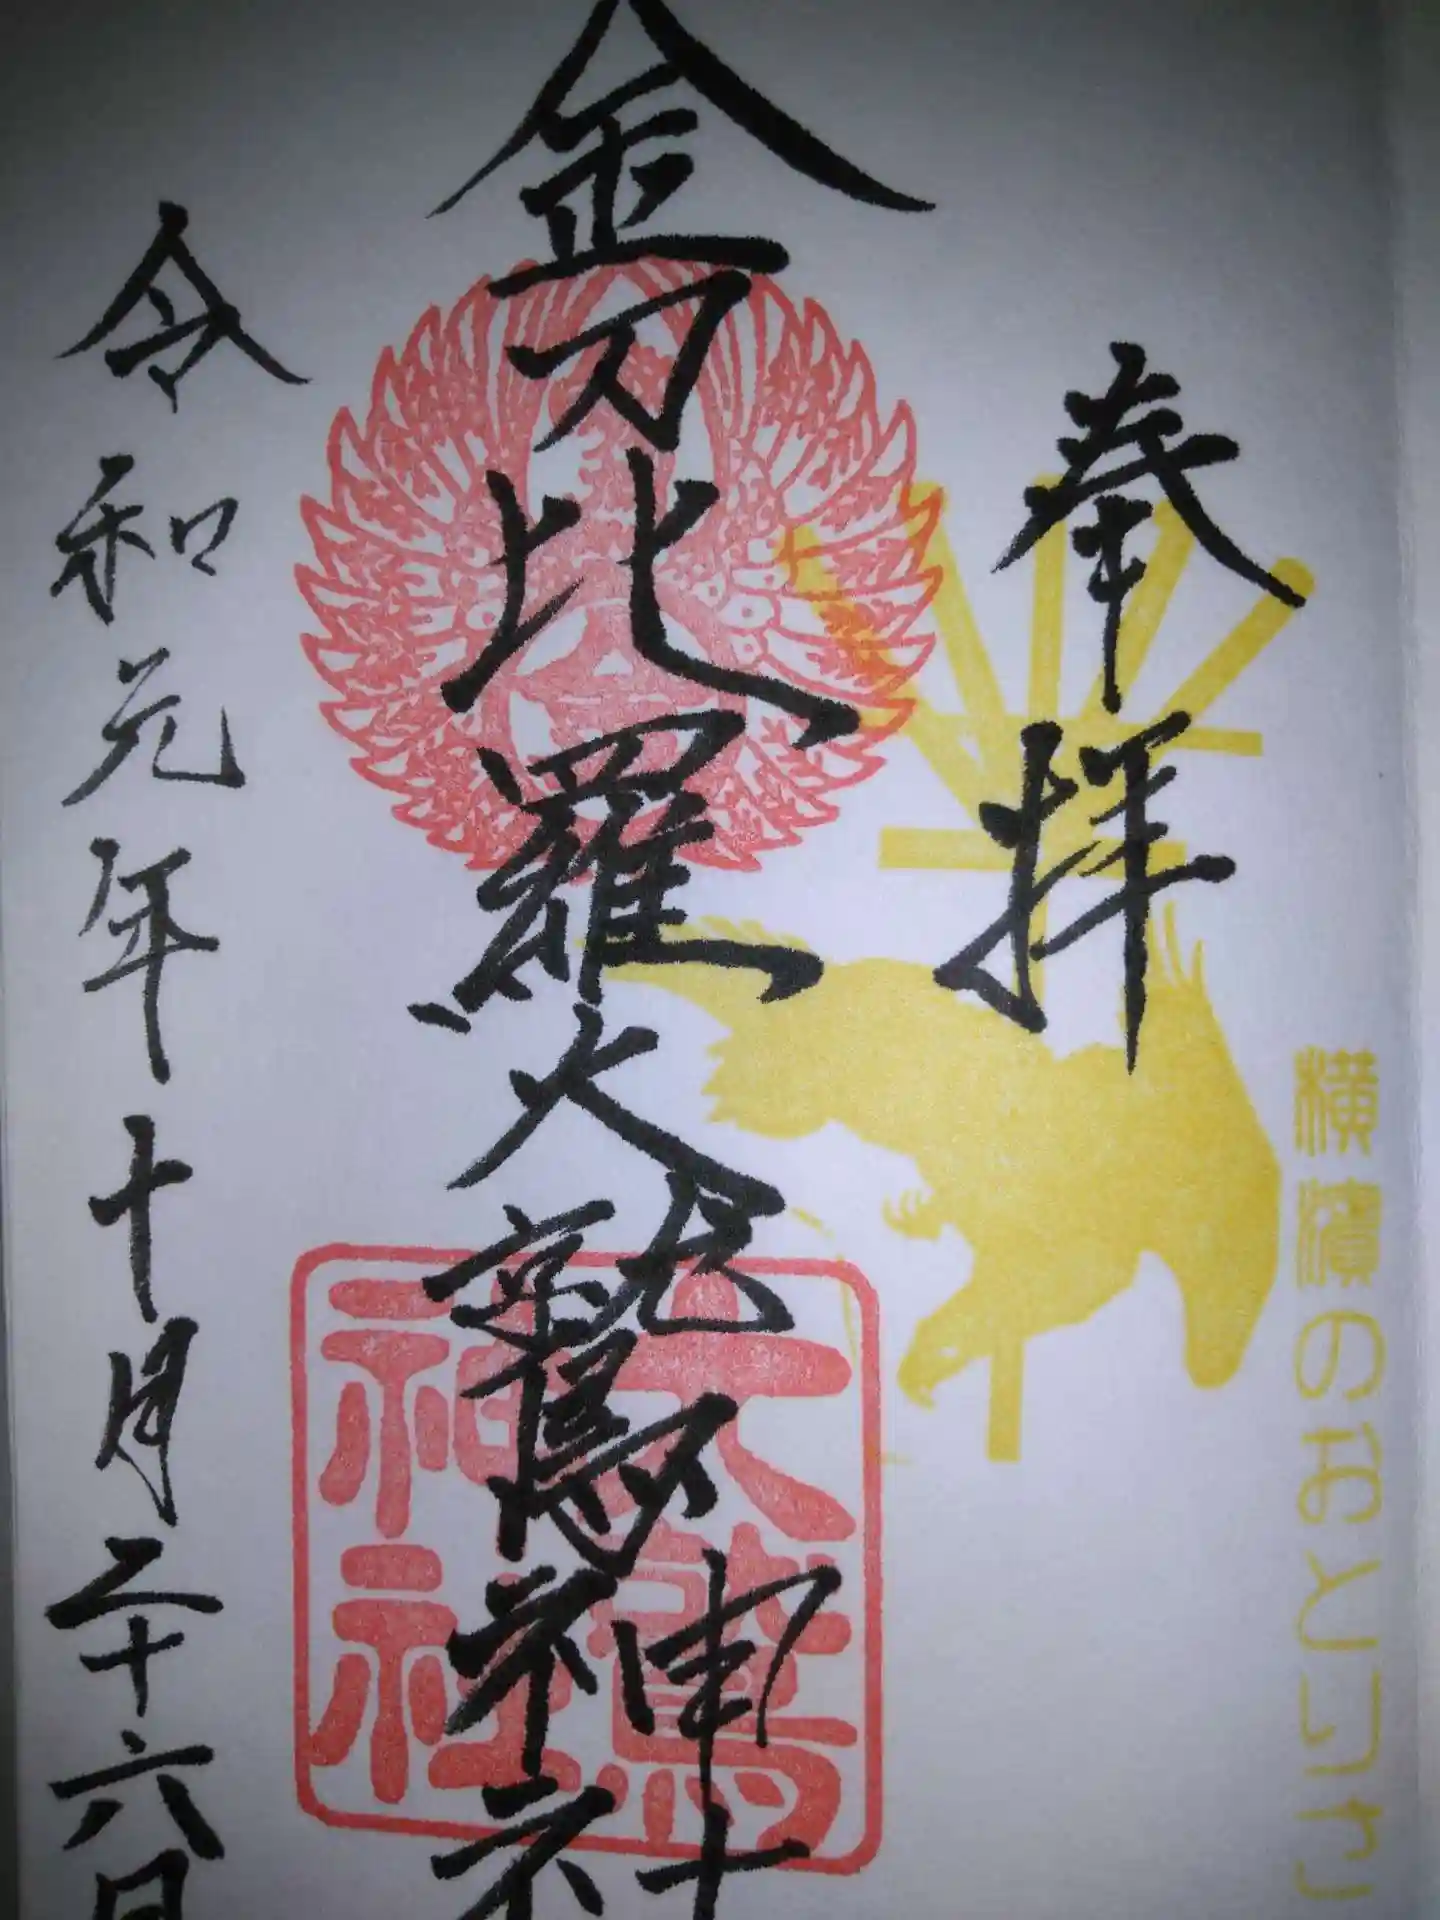 横濱のおとりさ
奉拝
金刀比羅大鷲神社
大鷲
神社
令和元年十月二十六日